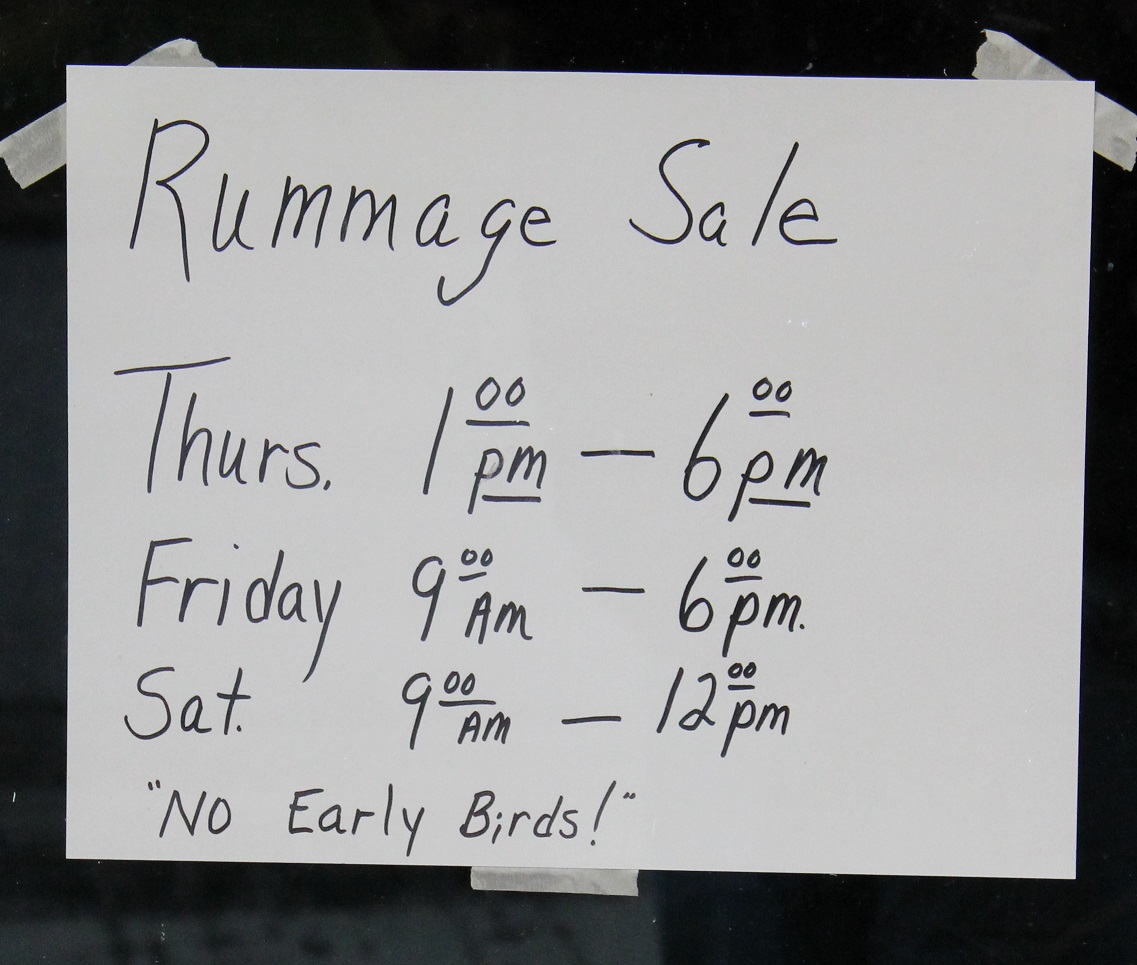 Rummage Sale
Thurs. 1 00 pm — 6 00 pm
Friday 9 00 Am — 6 00 pm.
Sat. 9 00 Am — 12 00 pm
"No Early Birds!"